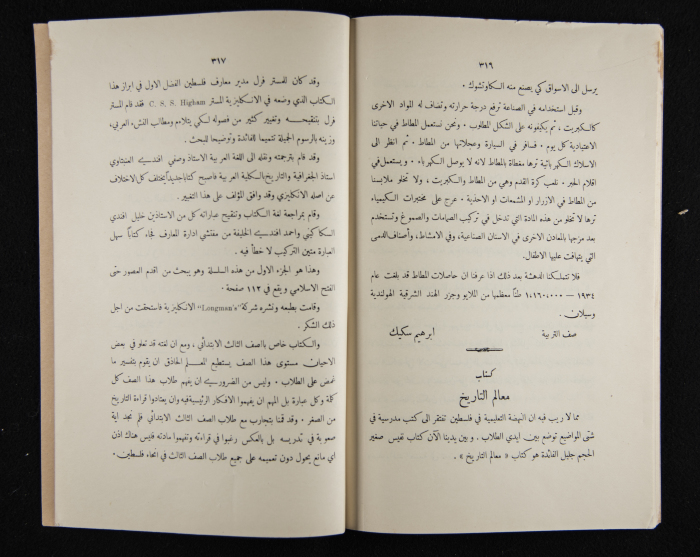 ٣١٩
يرسل الى الاسواق كي يصنع منه الكاوتشوك .
وقبل استخدامه في الصناعة ترفع درجة حرارته وتضاف له المواد الاخرى
كالكبريت ، ثم يكيفونه على الشكل المطلوب . ونحن نستعمل المطاط في حياتنا
الاعتيادية كل يوم . فسافر في السيارة وعجلاتها من المطاط . ثم انظر الى
الاسلاك الكهربائية ترها مغطاة بالمطاط لانه لا يوصل الكهرباء . ويستعمل في
اقلام الحبر . نلعب كرة القدم وهي من المطاط والكبريت ، ولا تخلو ملابسنا
من المطاط في الازرار او المشمعات او الاحذية . عرج على مختبرات الكيمياء
ترها لا تخلو من هذه المادة التي تدخل في تركيب الصمامات والصموغ وتستخدم
بعد مزجها بالمعادن الاخرى في الاسنان الصناعية، وفي الامشاط، وأصناف الدمى
التي يتهافت عليها الاطفال .
فلا تتملكنا الدهشة بعد ذلك اذا عرفنا ان حاصلات المطاط قد بلغت عام
١٩٣٤ — ١٬٠١٦٠٬٠٠٠ طناً معظمها من الملايو وجزر الهند الشرقية الهولندية
وسيلان .
صف التربية ابرهيم سكيك
كتاب
معالم التاريخ
مما لا ريب فيه ان النهضة التعليمية في فلسطين تفتقر الى كتب مدرسية في
شتى المواضيع توضع بين ايدي الطلاب . وبين يدينا الآن كتاب نفيس صغير
الحجم جليل الفائدة هو كتاب « معالم التاريخ » .
٣١٧
وقد كان للمستر فرل مدير معارف فلسطين الفضل الاول في ابراز هذا
الكتاب الذي وضعه في الانكليزية المستر C. S. S. Higham فقد قام المستر
فرل بتنقيحه وتغيير كثير من فصوله لكي يتلاءم ومطالب النشء العربي،
وزينه بالرسوم الجميلة تتميما للفائدة وتوضيحا للبحث .
وقد قام بترجمته ونقله الى اللغة العربية الاستاذ وصفي افندي العنبتاوي
استاذ الجغرافية والتاريخ بالكلية العربية فاصبح كتابا جديدا يختلف كل الاختلاف
عن اصله الانكليزي وقد وافق المؤلف على هذا التغيير .
وقام بمراجعة لغة الكتاب وتنقيح عباراته كل من الاستاذين خليل افندي
السكاكيني واحمد افندي الخليفة من مفتشي ادارة المعارف فجاء كتابا سهل
العبارة متين التركيب لا خطأ فيه .
وهذا هو الجزء الاول من هذه السلسلة وهو يبحث من اقدم العصور حتى
الفتح الاسلامي ويقع في ١١٢ صفحة .
وقامت بطبعه ونشره شركة "Longman's" الانكليزية فاستحقت من اجل
ذلك الشكر .
والكتاب خاص بالصف الثالث الابتدائي ، ومع ان لغته قد تعلو في بعض
الاحيان مستوى هذا الصف يستطيع المعلم الحاذق ان يقوم بتفسير ما
غمض على الطلاب . وليس من الضروري ان يفهم طلاب هذا الصف كل
كلمة وكل عبارة بل المهم ان يفهموا الافكار الرئيسية فيه وان يعتادوا قراءة التاريخ
من الصغر . وقد قمنا بتجارب مع طلاب الصف الثالث الابتدائي فلم نجد اية
صعوبة في تدريسه بل بالعكس رغبوا في قراءته وتفهموا مادته فليس هناك اذن
اي مانع يحول دون تعميمه على جميع طلاب الصف الثالث في انحاء فلسطين .